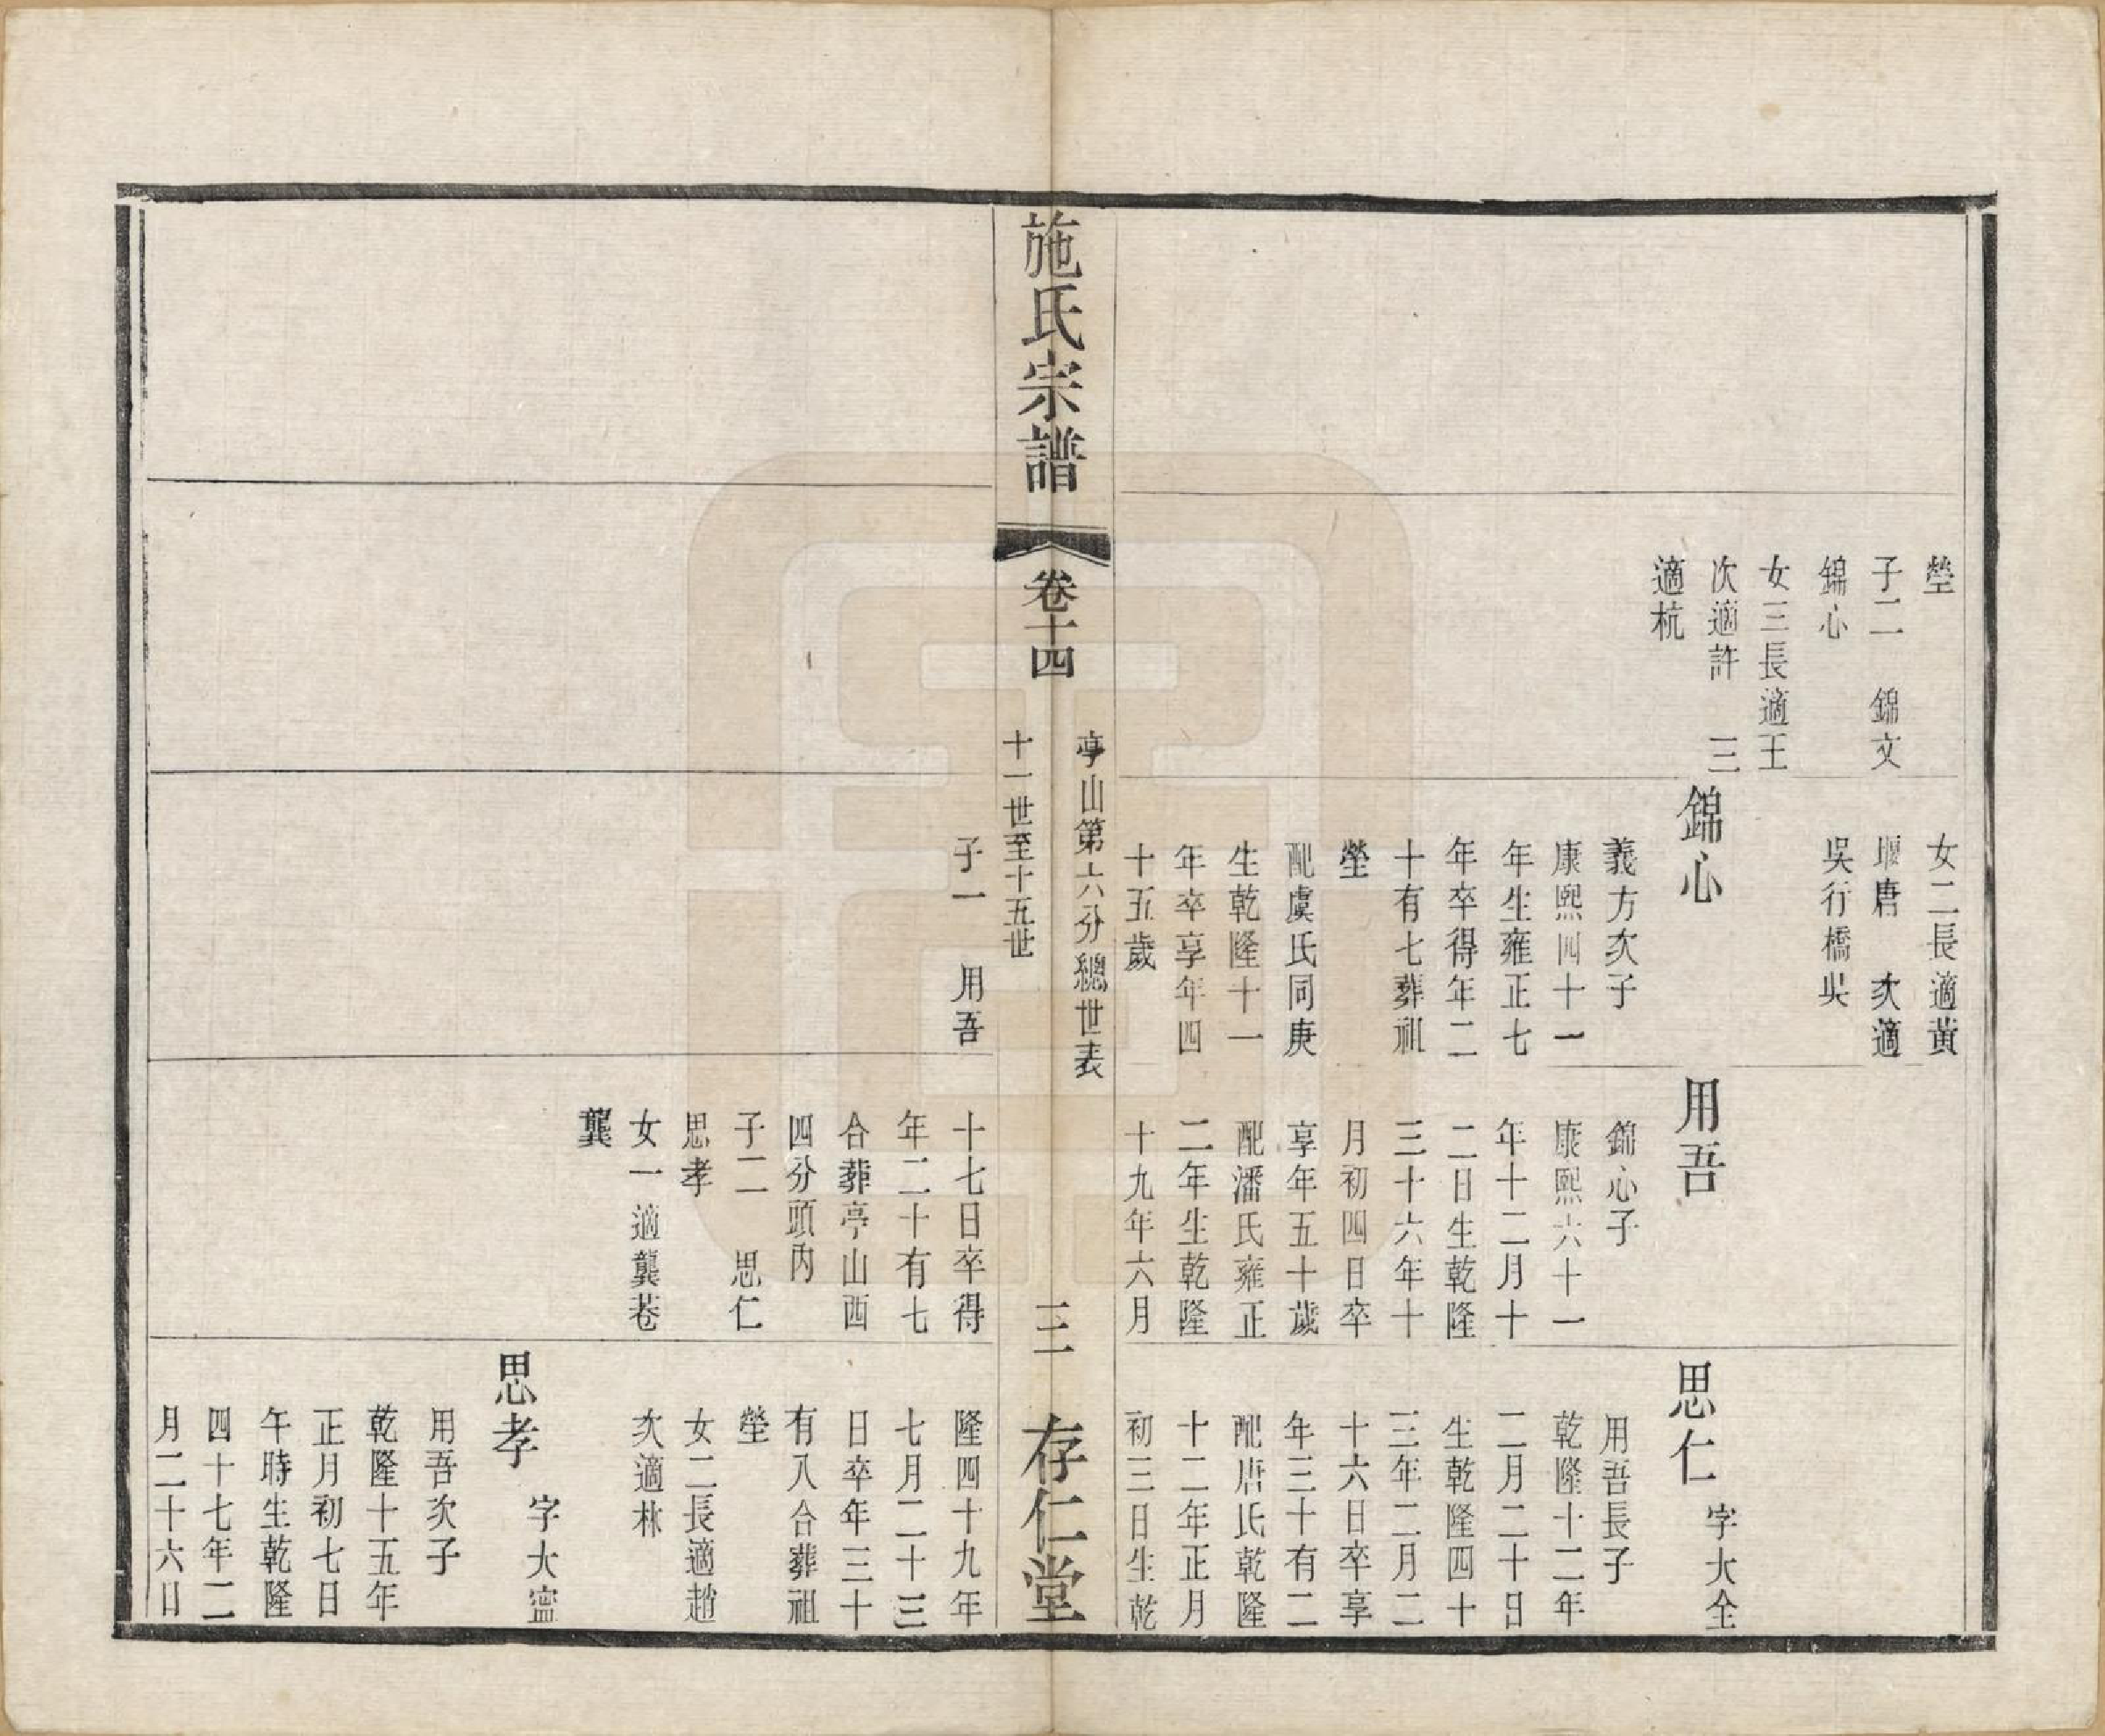 塋
子二　錦文
錦心
女三長適王
次適許　三
適杭
女二長適黃
堰唐　次適
吳行橋吳
錦心
義方次子
康熙四十一
年生雍正七
年卒得年二
十有七葬祖
塋
配虞氏同庚
生乾隆十一
年卒享年四
十五歲
用吾
錦心子
康熙六十一
年十二月十
二日生乾隆
三十六年十
月初四日卒
享年五十歲
配潘氏雍正
二年生乾隆
十九年六月
思仁　字大全
用吾長子
乾隆十二年
二月二十日
生乾隆四十
三年二月二
十六日卒享
年三十有二
配唐氏乾隆
十二年正月
初三日生乾
施氏宗譜
卷十四
亭山第六分總世表
十一世至十五世
三
存仁堂
子一　用吾
十七日卒得
年二十有七
合葬亭山西
四分頭內
子二　思仁
思孝
女一適龔巷
龔
隆四十九年
七月二十三
日卒年三十
有八合葬祖
塋
女二長適趙
次適林
思孝　字大寍
用吾次子
乾隆十五年
正月初七日
午時生乾隆
四十七年二
月二十六日